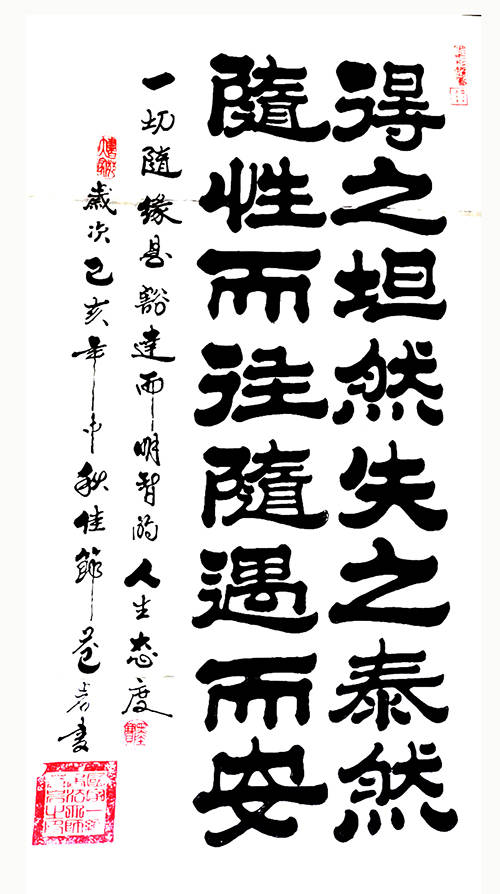 得之坦然失之泰然
隨性而往隨遇而安
一切隨緣是豁達而明智的人生态度
歲次己亥年中秋佳節书